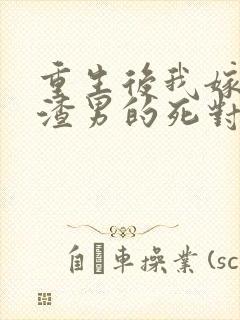 重生後我嫁
渣男的死對
自 車操業 (sc